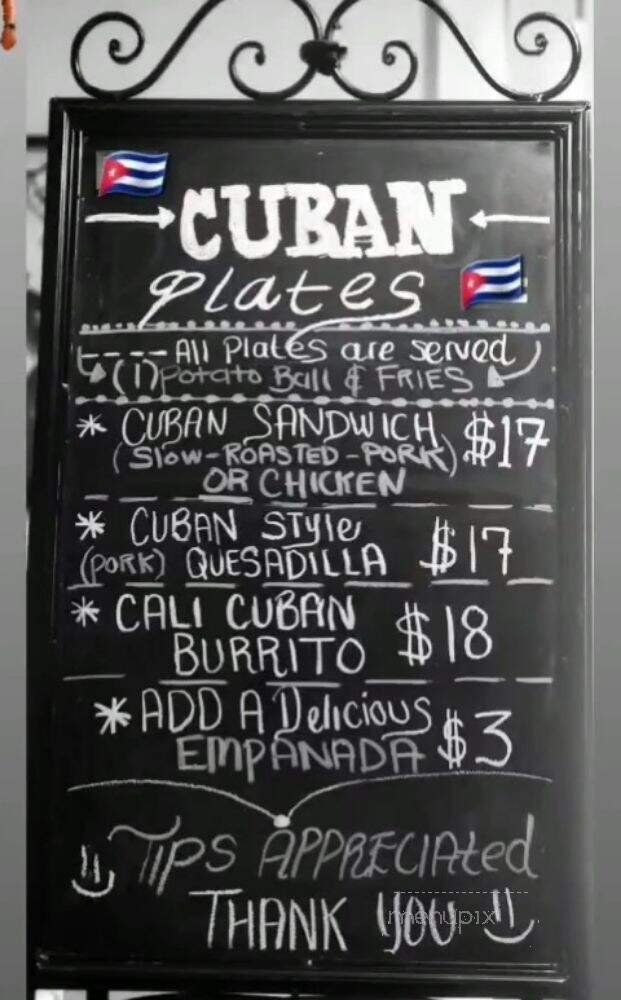 CUBAN
Plates
All Plates are served
(1) Potato Ball & FRIES
* CUBAN SANDWICH $17
(Slow-ROASTED-PORK)
OR CHICKEN
* CUBAN Style
(PORK) QUESADILLA $17
* CALI CUBAN
BURRITO $18
* ADD A Delicious
EMPANADA $3
TIPS APPRECIAted
THANK YOU
menupix